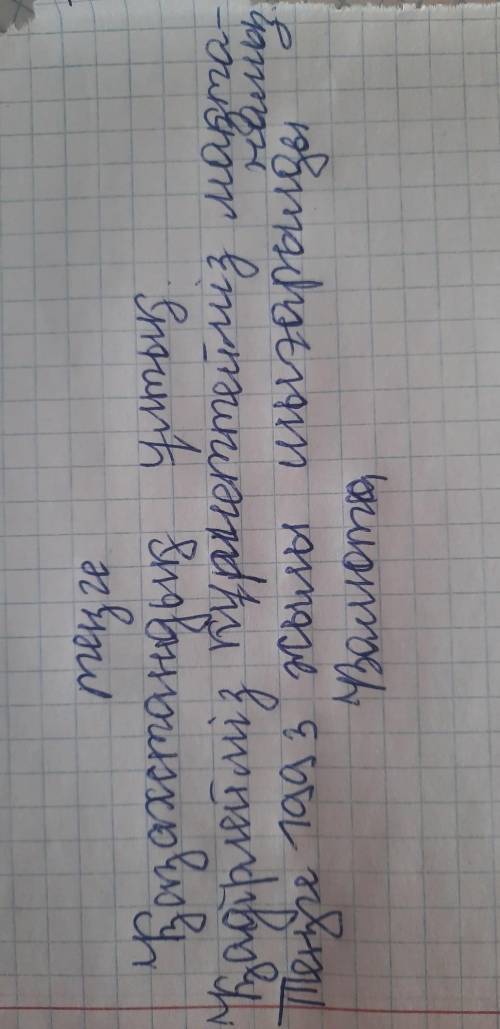 теңге
Қазахстандық ұлтық
Қадірлейміз құрметтейміз мақта-
намыз
Теңге 1993 жылы шығарылды
Валюта